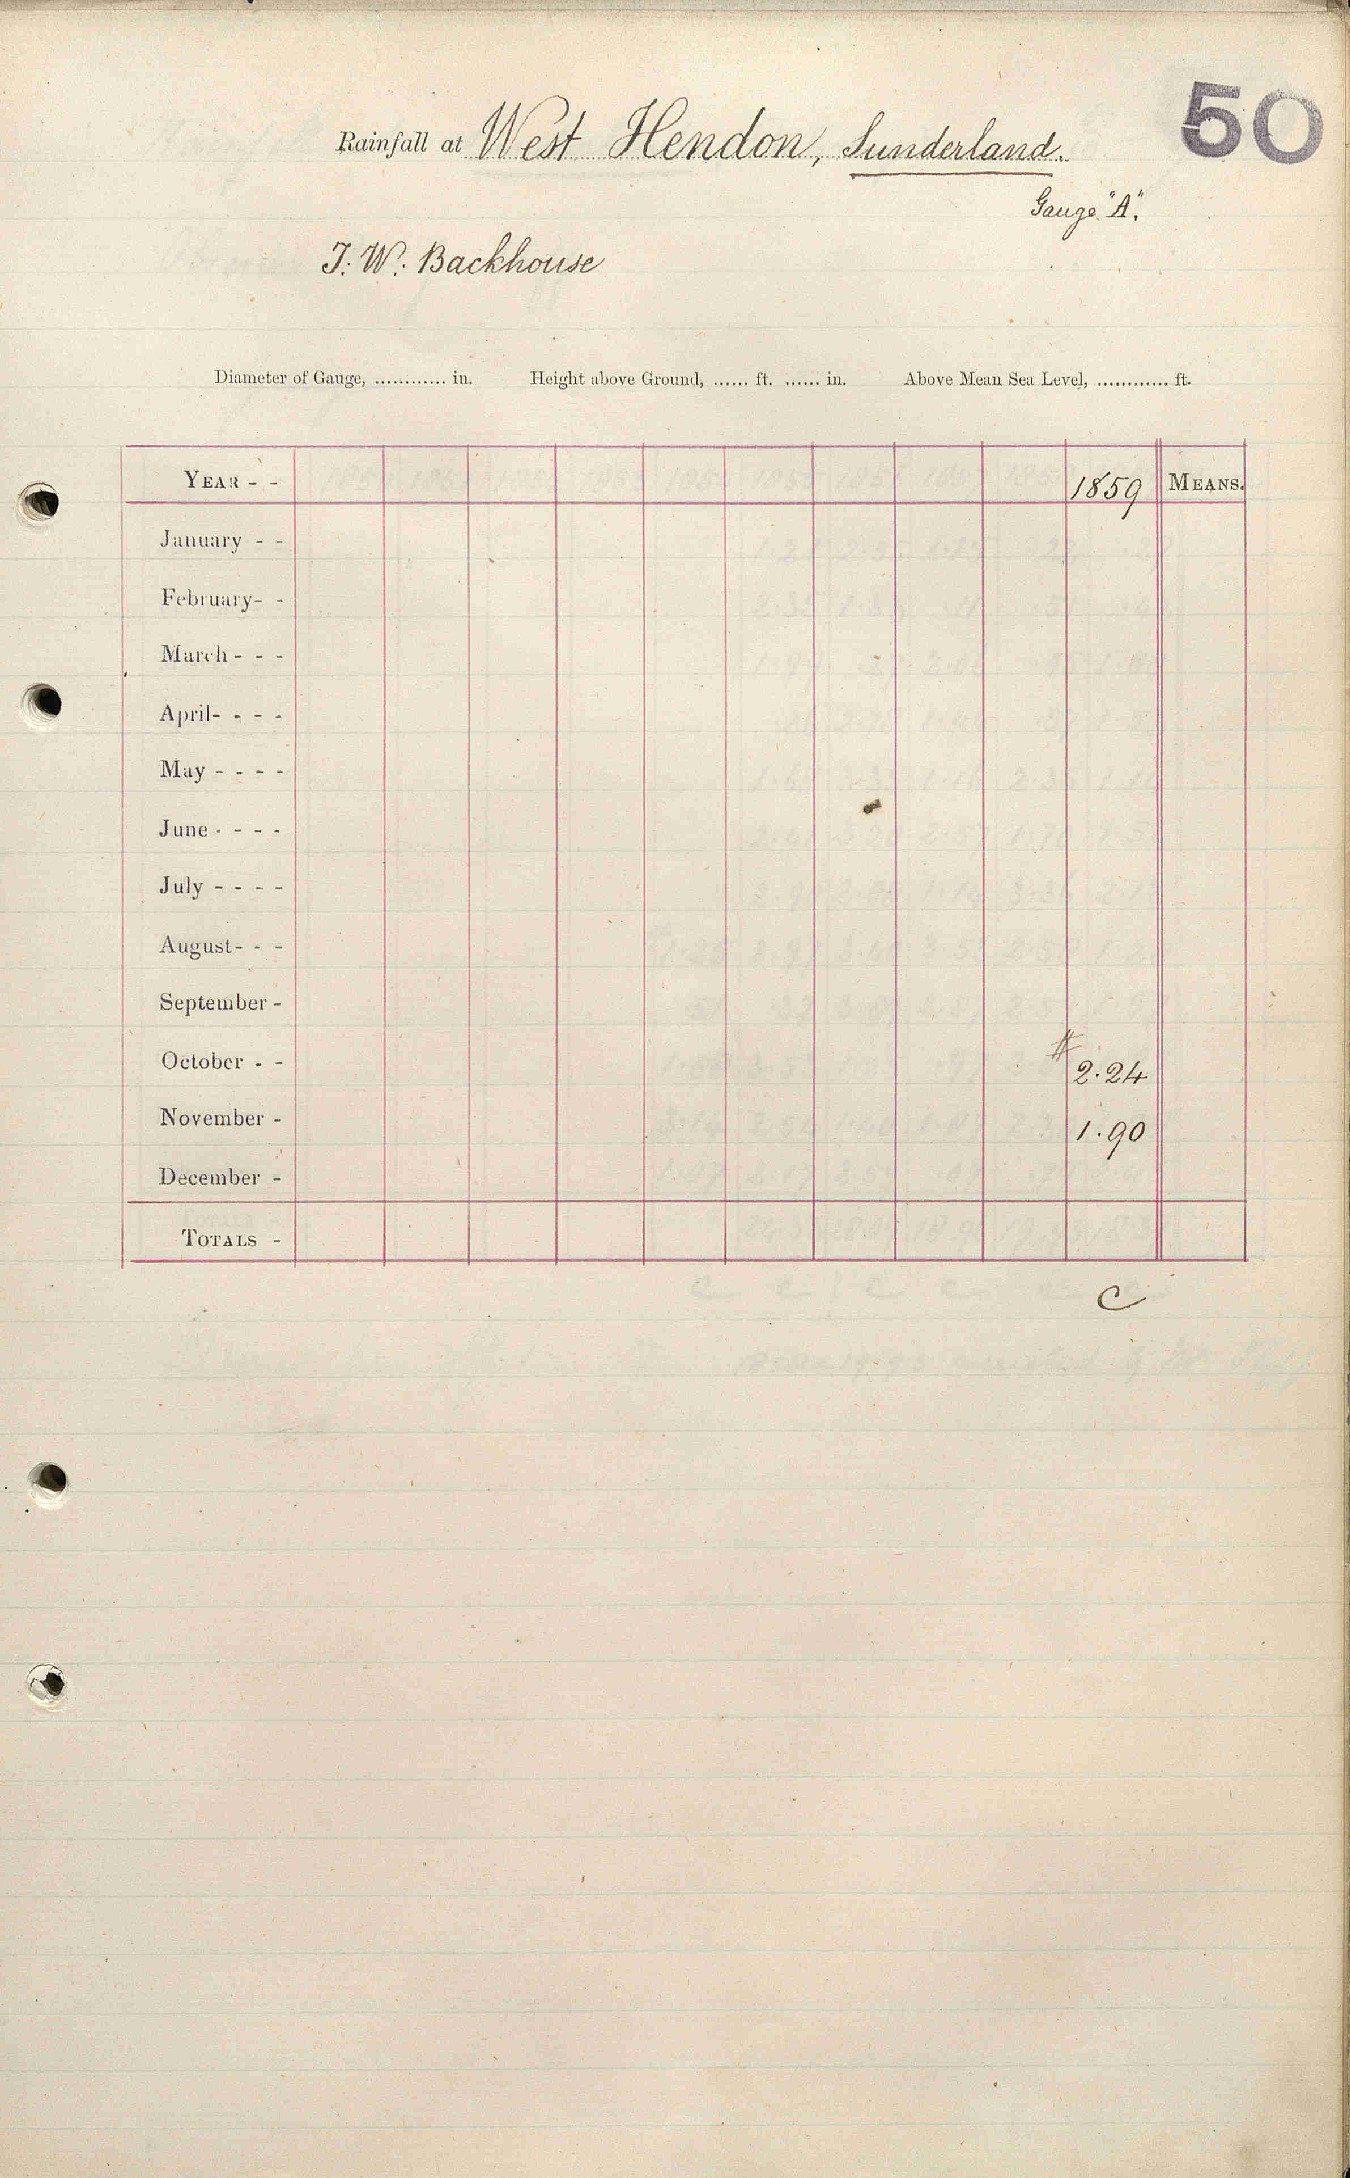 50
Rainfall at West Hendon, Sunderland.
Gauge "A".
T. W. Backhouse
Diameter of Gauge, ............ in. Height above Ground, ...... ft. ...... in. Above Mean Sea Level, ............ ft.
YEAR - - 1859 MEANS.
January - -
February- -
March - - -
April- - - -
May - - - -
June - - - -
July - - - -
August- - -
September -
October - - # 2.24
November - 1.90
December -
TOTALS -
C